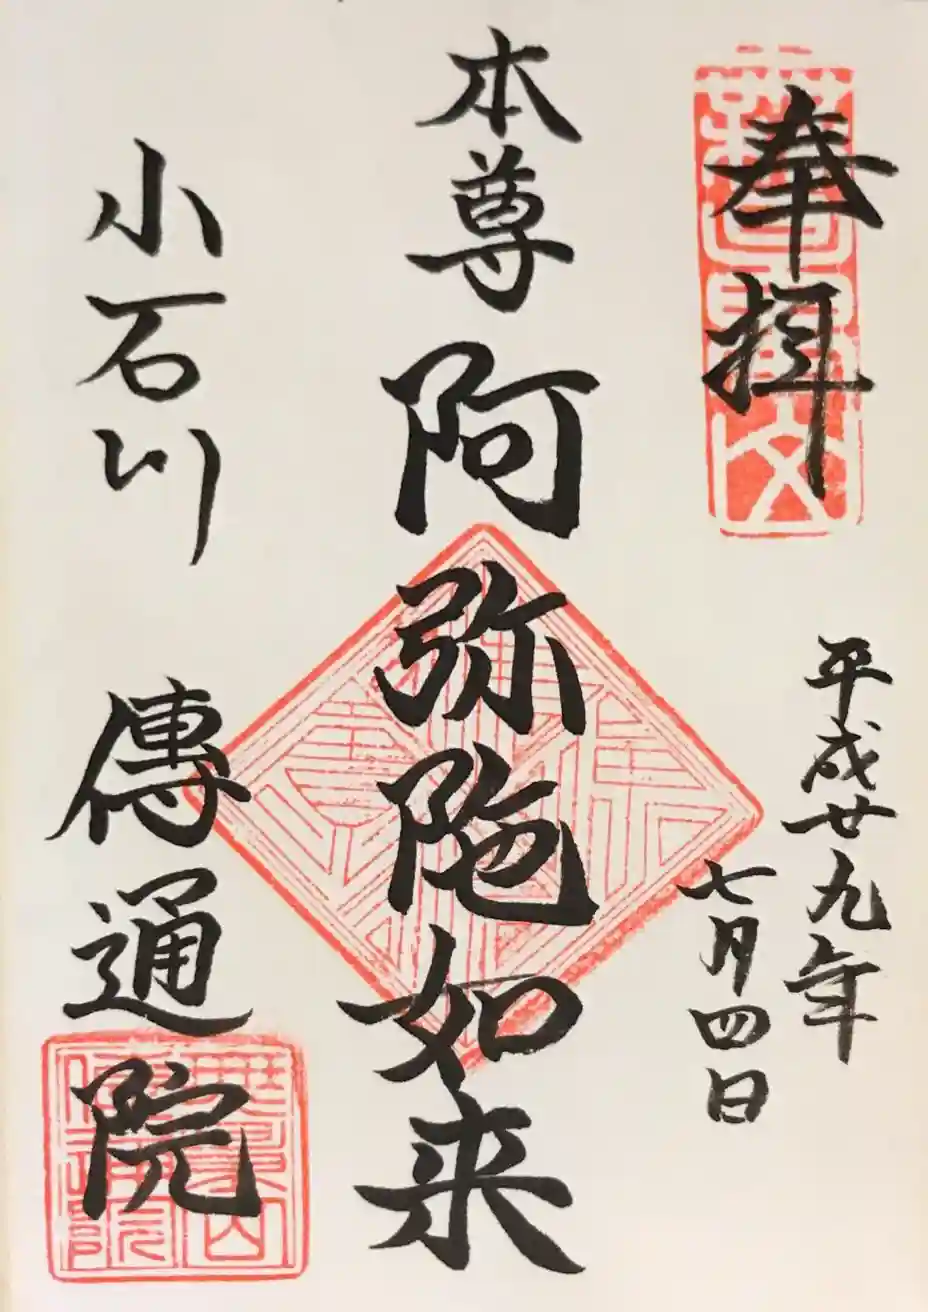 奉拝
平成廿九年
七月四日
本尊 阿弥陀如来
小石川 傳通院